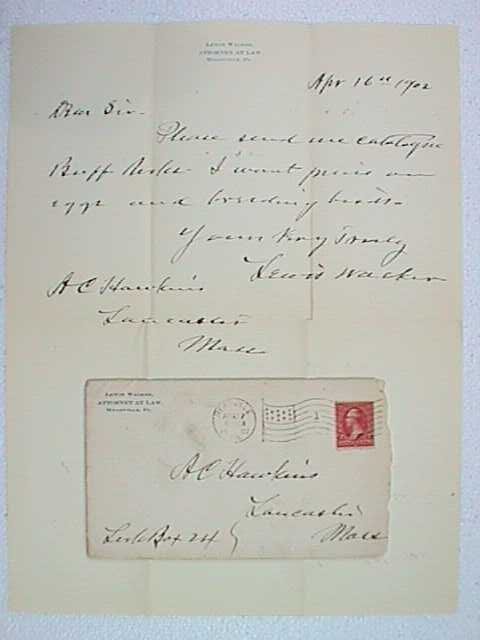 Lewis Walker,
Attorney at Law,
Meadville, Pa.
Apr 16th 1902
Dear Sir.
Please send me catalogue
Buff I want prices on
eggs and breeding birds.
Yours Very Truly
Lewis Walker
A C Hawkins
Lancaster
Mass
Lewis Walker,
Attorney at Law,
Meadville, Pa.
1
A C Hawkins
Lancaster
Lock Box 24
Mass